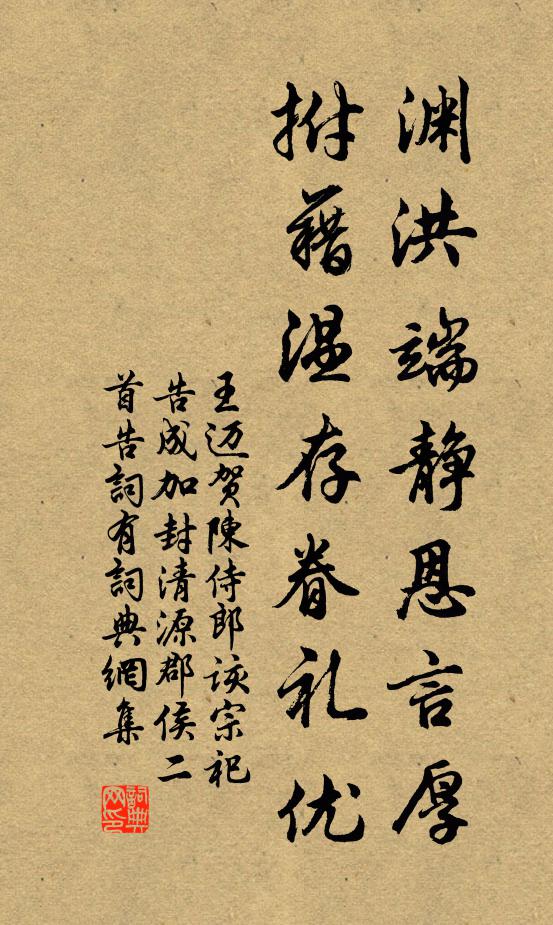 渊洪端静恩言厚
拊藉温存眷礼优
王迈贺陳侍郎该宗祀
告成加封清源郡侯二
首告詞有詞典網集
詞典网印